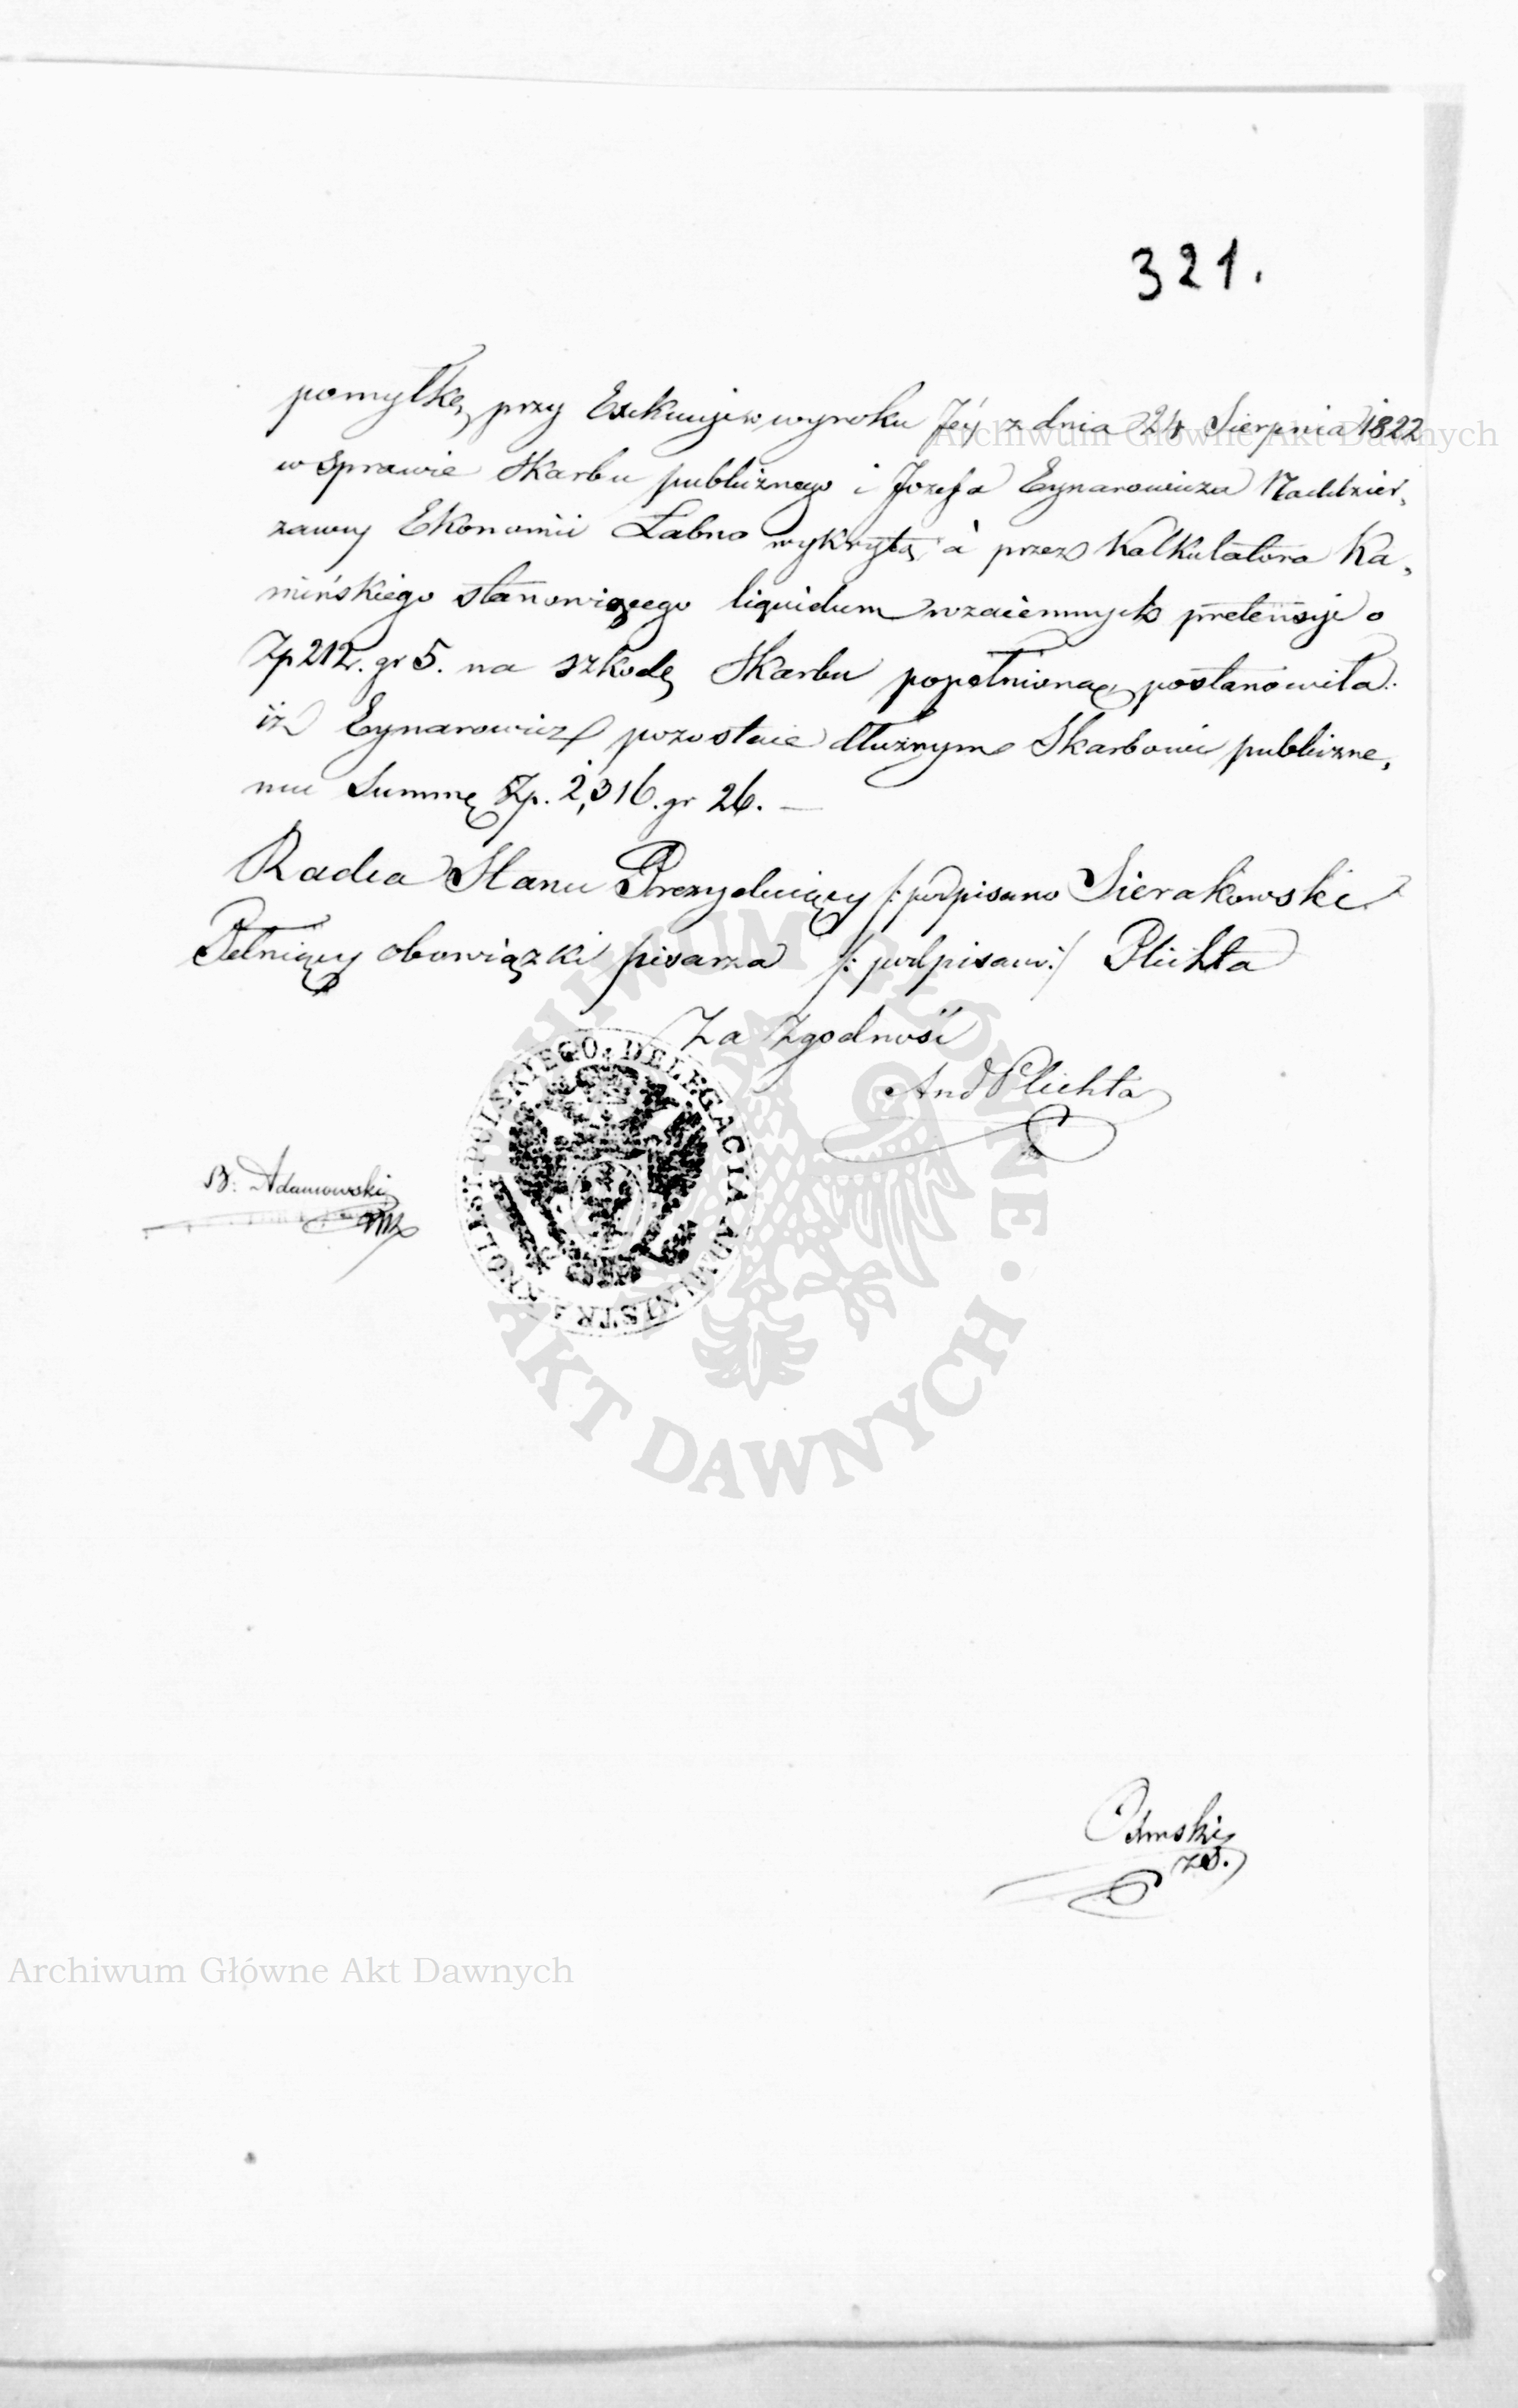 321.
pomyłkę przy Exekucyi wyroku Jéy z dnia 24 Sierpnia 1822
w Sprawie Skarbu publicznego i Jozefa Eynarowicza Naddzier,
zawcy Ekonomii Łabno wykrytą, à przez Kalkulatora Ka,
mińskiego stanowiącego liquidum wzaiemnych pretensyi o
Zp 212. gr 5. na szkodę Skarbu popełnioną, postanowiła
iż Eynarowicz pozostaie dłużnym Skarbowi publiczne,
mu Summę Zp. 2,316. gr 26. —
Radca Stanu Prezyduiący /: podpisano Sierakowski
Pełniący obowiązki pisarza /: podpisano :/ Plichta
Za Zgodność
And Plichta
B: Adamowski
KROLEST: POLSKIEGO. DELEGACIA ADMINISTR:
ARCHIWUM GŁÓWNE • AKT DAWNYCH •
Archiwum Główne Akt Dawnych
Archiwum Główne Akt Dawnych